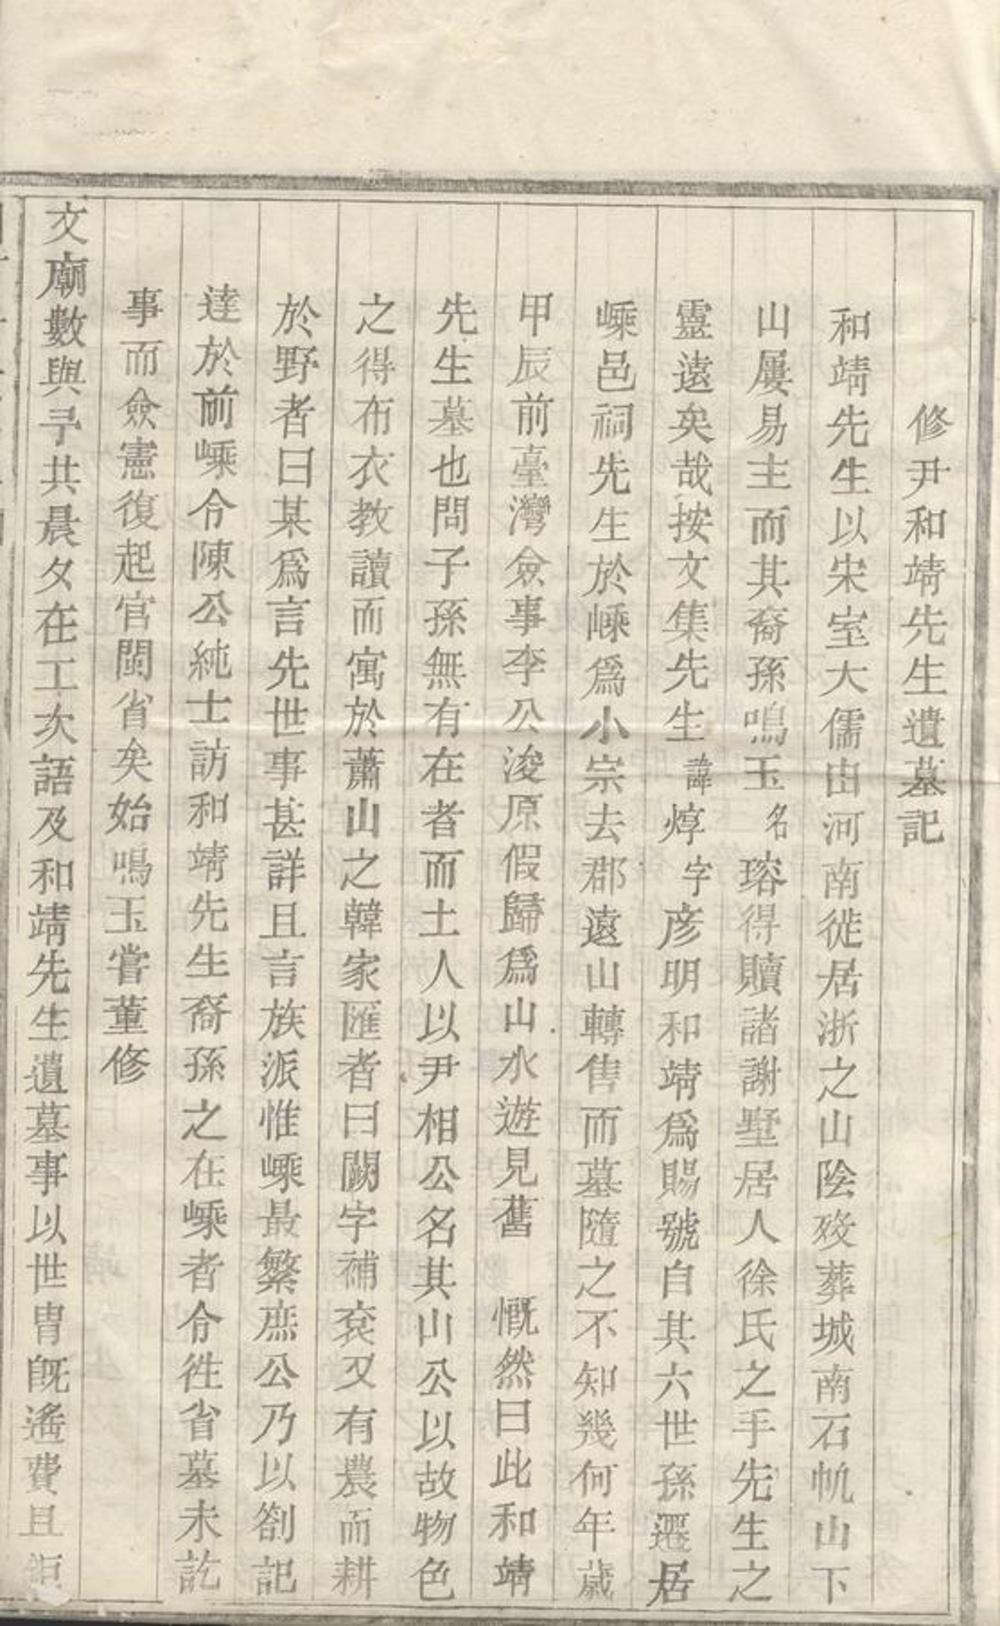 修尹和靖先生遺墓記
和靖先生以宋室大儒由河南徙居浙之山陰歿葬城南石帆山下
山屢易主而其裔孫鳴玉名瑢得贖諸謝墅居人徐氏之手先生之
靈遠矣哉按文集先生諱焞字彥明和靖爲賜號自其六世孫遷居
嵊邑祠先生於嵊爲小宗去郡遠山轉售而墓隨之不知幾何年歲
甲辰前臺灣僉事李公浚原假歸爲山水遊見舊 慨然曰此和靖
先生墓也問子孫無有在者而土人以尹相公名其山公以故物色
之得布衣教讀而寓於蕭山之韓家匯者曰闕字補袞又有農而耕
於野者曰某爲言先世事甚詳且言族派惟嵊最繁庶公乃以劄記
達於前嵊令陳公純士訪和靖先生裔孫之在嵊者令徃省墓未訖
事而僉憲復起官閩省矣始鳴玉嘗董修
文廟數與予共晨夕在工次語及和靖先生遺墓事以世胄旣遙費且